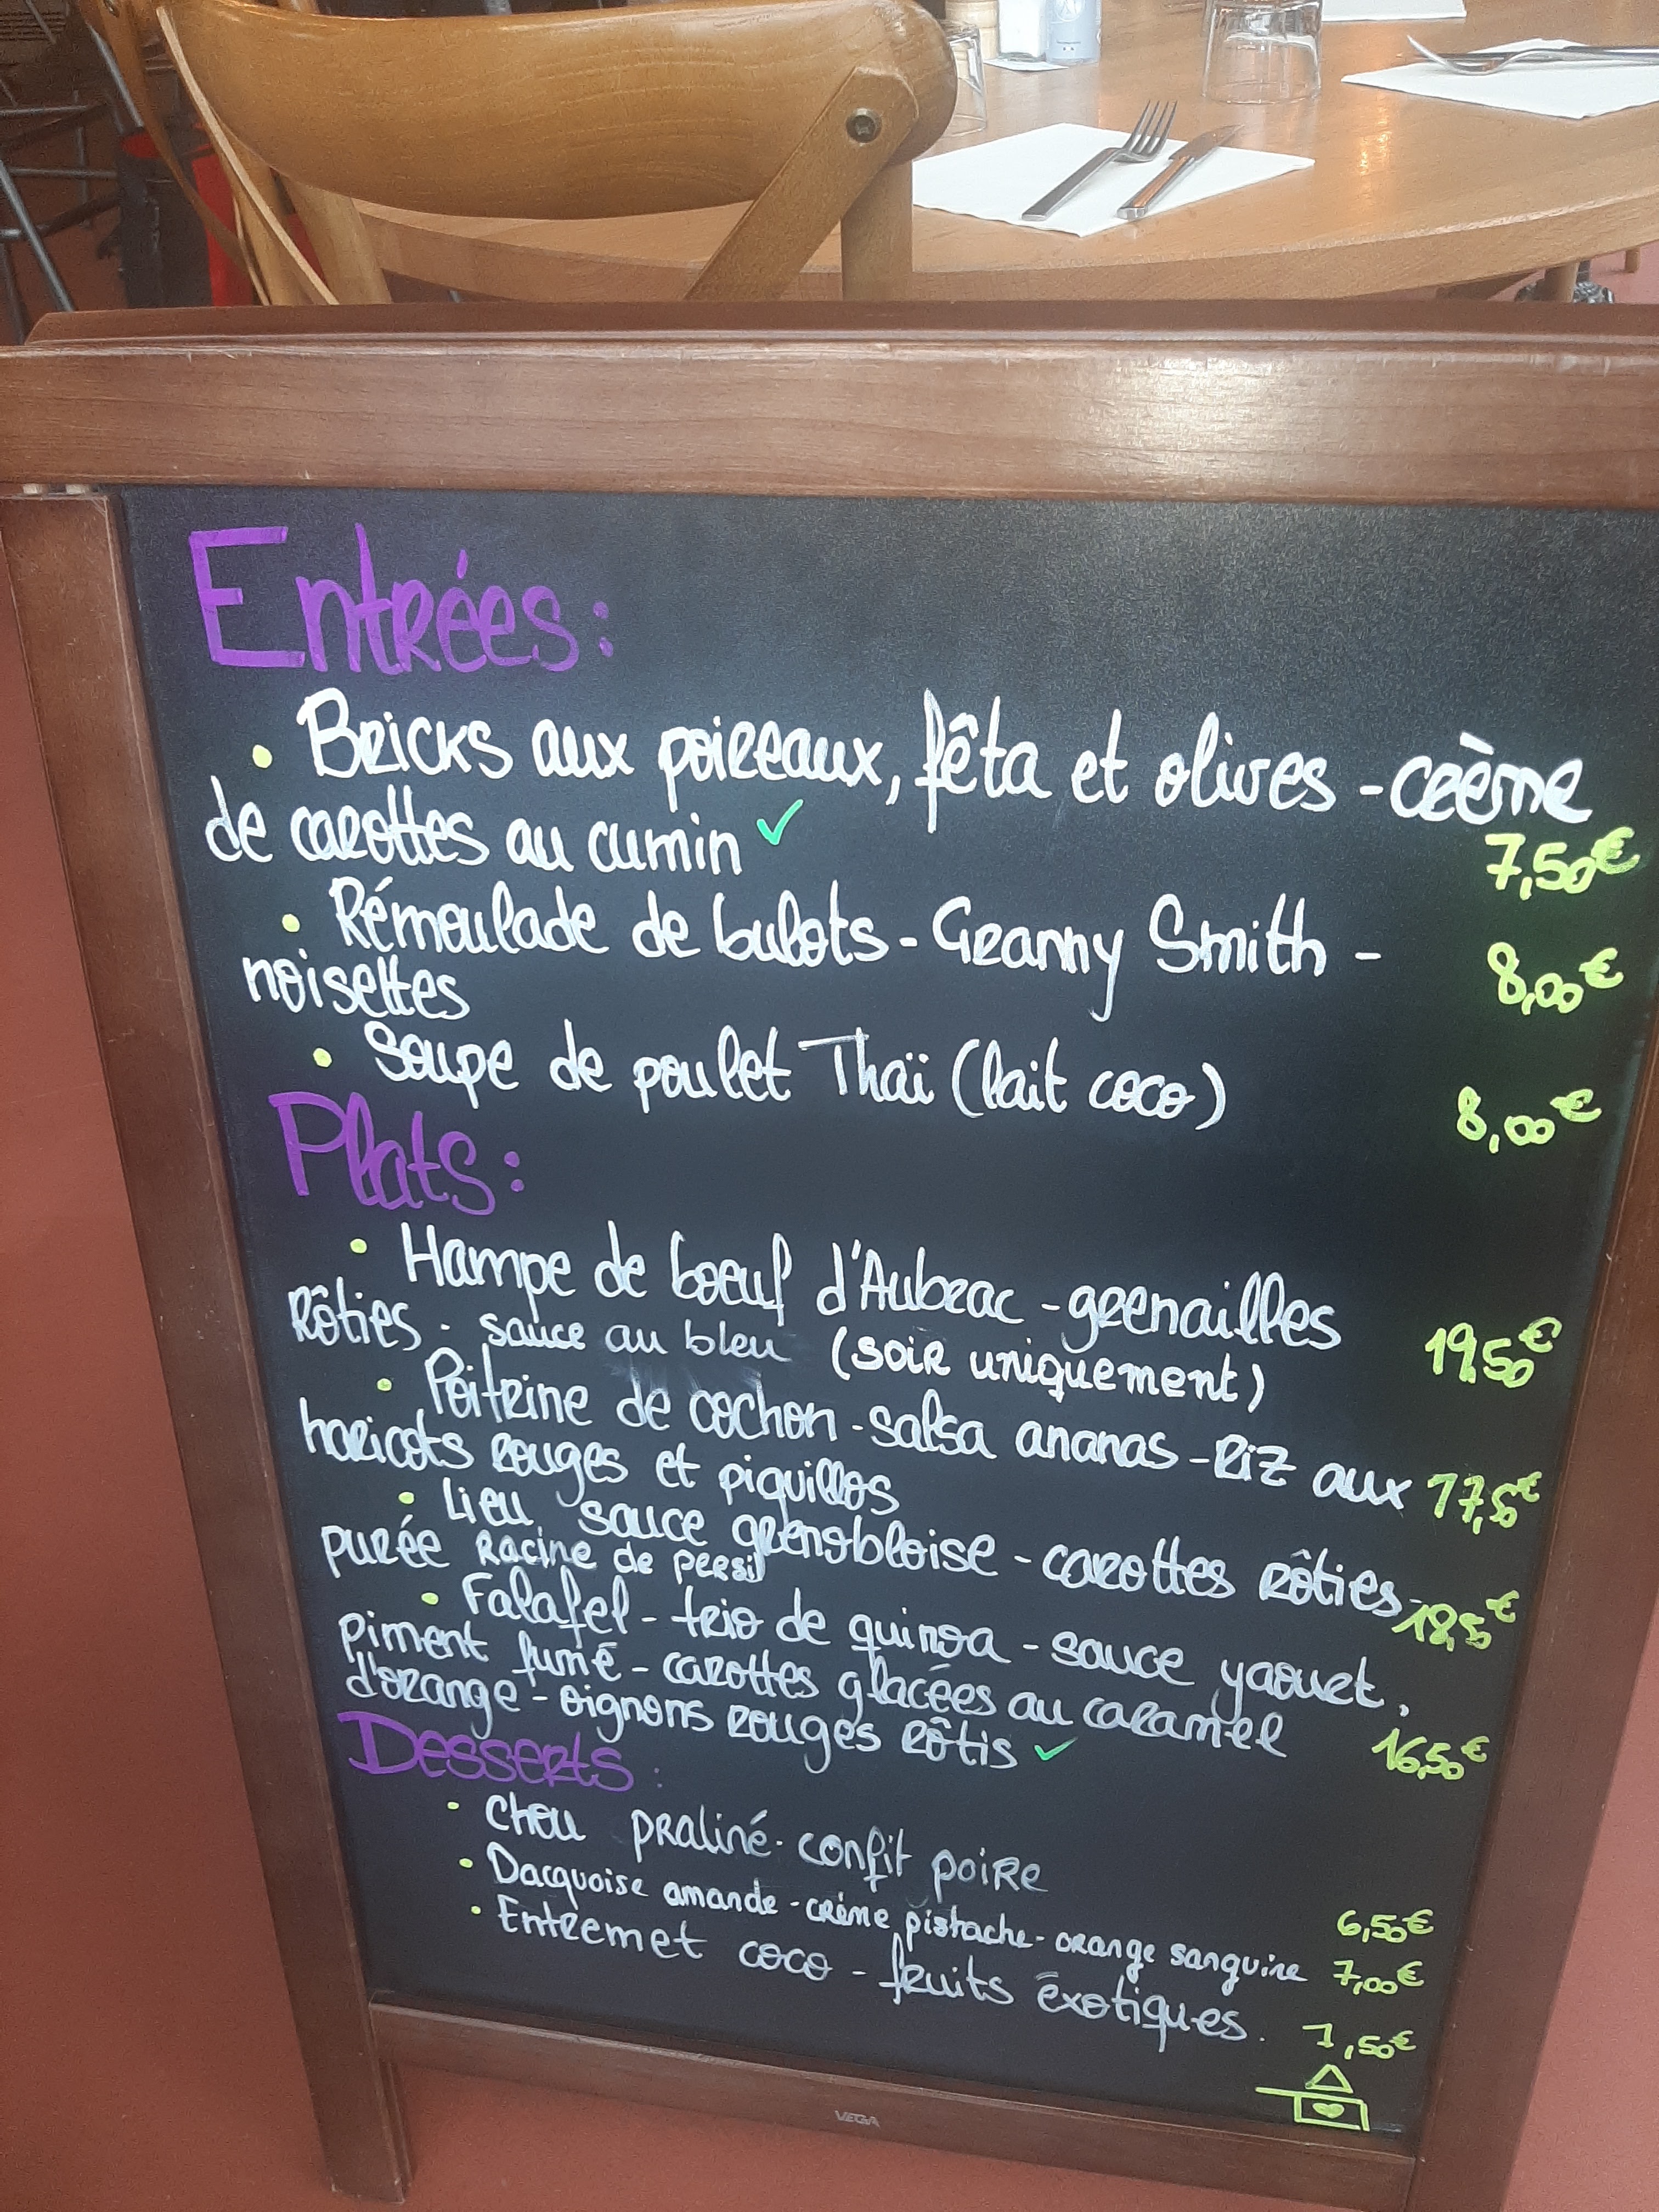 Entrées:
• Bricks aux poireaux, fêta et olives - crème
de carottes au cumin ✓ 7,50€
• Rémoulade de bulots - Granny Smith - 8,00€
noisettes
• Soupe de poulet Thaï (lait coco) 8,00€
Plats:
• Hampe de boeuf d'Aubrac - grenailles
Rôties - sauce au bleu (soir uniquement) 19,50€
• Poitrine de cochon - salsa ananas - Riz aux 17,5€
haricots rouges et piquillos
• Lieu sauce grenobloise - carottes rôties - 18,5€
purée Racine de persil
• Falafel - trio de quinoa - sauce yaourt,
Piment fumé - carottes glacées au caramel
d'orange - oignons rouges rôtis ✓ 16,50€
Desserts:
• Chou praliné - confit poire 6,50€
• Dacquoise amande - crème pistache - orange sanguine 7,00€
• Entremet coco - fruits éxotiques.
VEGA